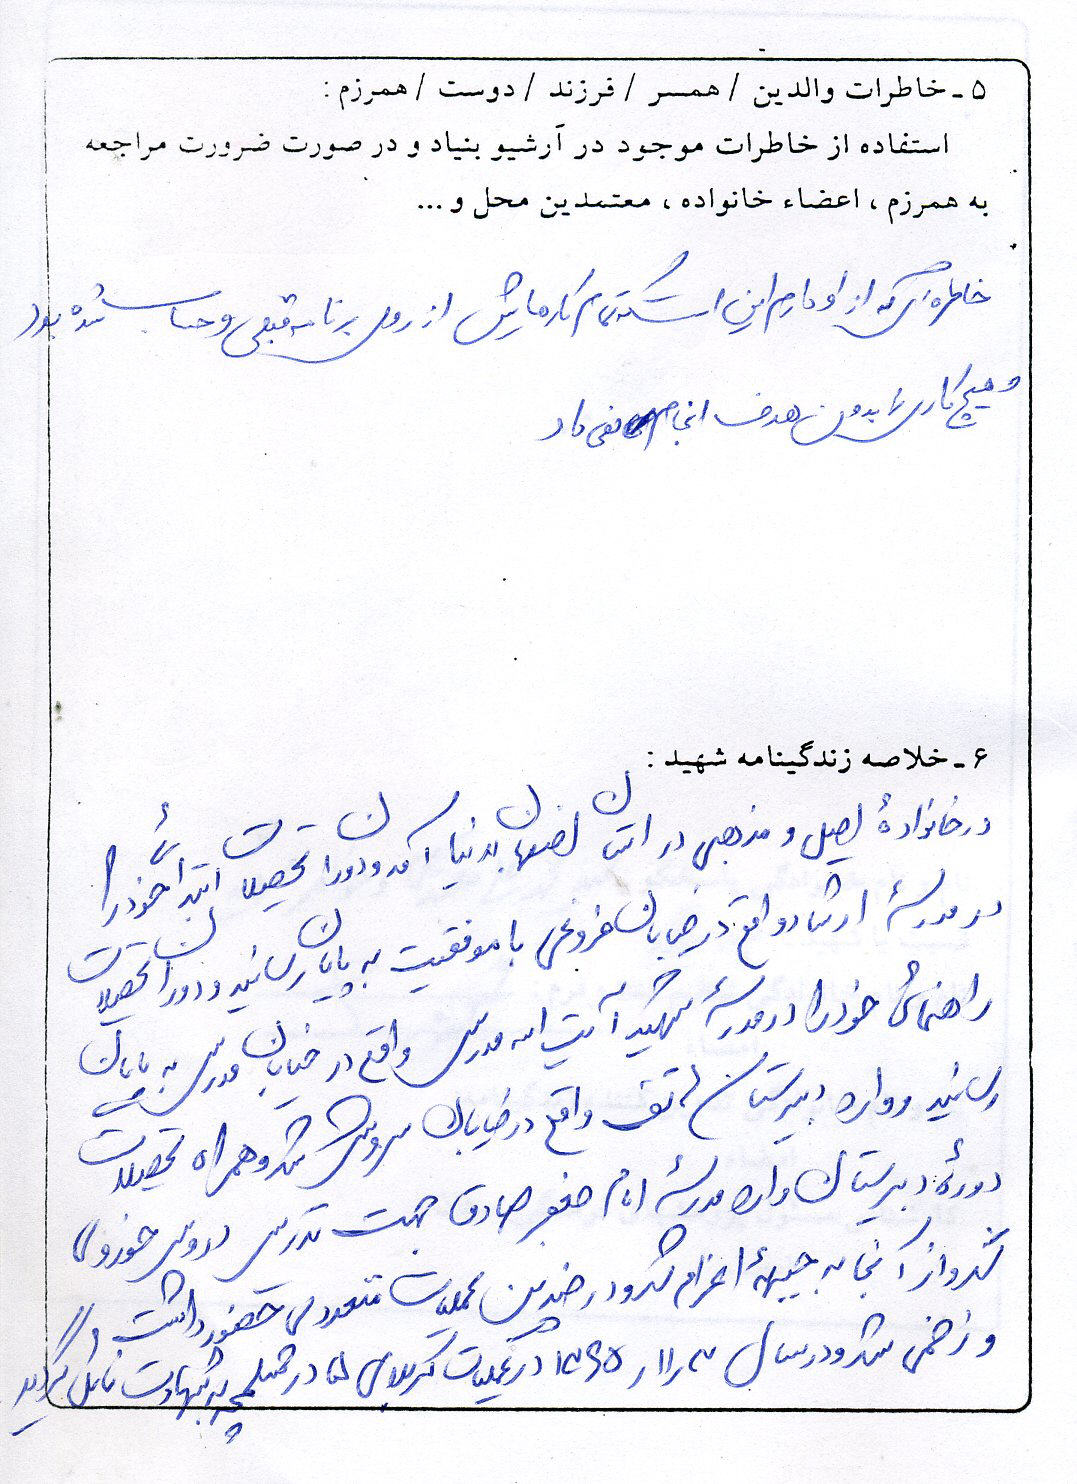 ۵ ـ خاطرات والدین / همسر / فرزند / دوست / همرزم :
استفاده از خاطرات موجود در آرشیو بنیاد و در صورت ضرورت مراجعه
به همرزم ، اعضاء خانواده ، معتمدین محل و ...
خاطره‌ای که از او دارم این است که تمام کارهایش از روی برنامه قبلی و حساب شده بود
و هیچ کاری را بدون هدف انجام نمی‌داد
۶ ـ خلاصه زندگینامه شهید :
در خانوادهٔ اصیل و مذهبی در استان اصفهان بدنیا آمد و دوران تحصیلات ابتدائی خود را
در مدرسهٔ ارشاد واقع در خیابان فروغی با موفقیت به پایان رسانید و دوران تحصیلات
راهنمائی خود را در مدرسهٔ شهید آیت اله مدرس واقع در خیابان مدرس به پایان
رسانید و وارد دبیرستان واقع در خیابان سروش شد و همراه تحصیلات
دورهٔ دبیرستان وارد مدرسهٔ امام جعفر صادق جهت تدریس دروس حوزوی
شد و از آنجا به جبههٔ اعزام شد و در چندین عملیات متعددی حضور داشت
و زخمی شد و در سال ۱۳۶۵/۱۱/۳ در عملیات کربلای ۵ در شلمچه به شهادت نائل گردید